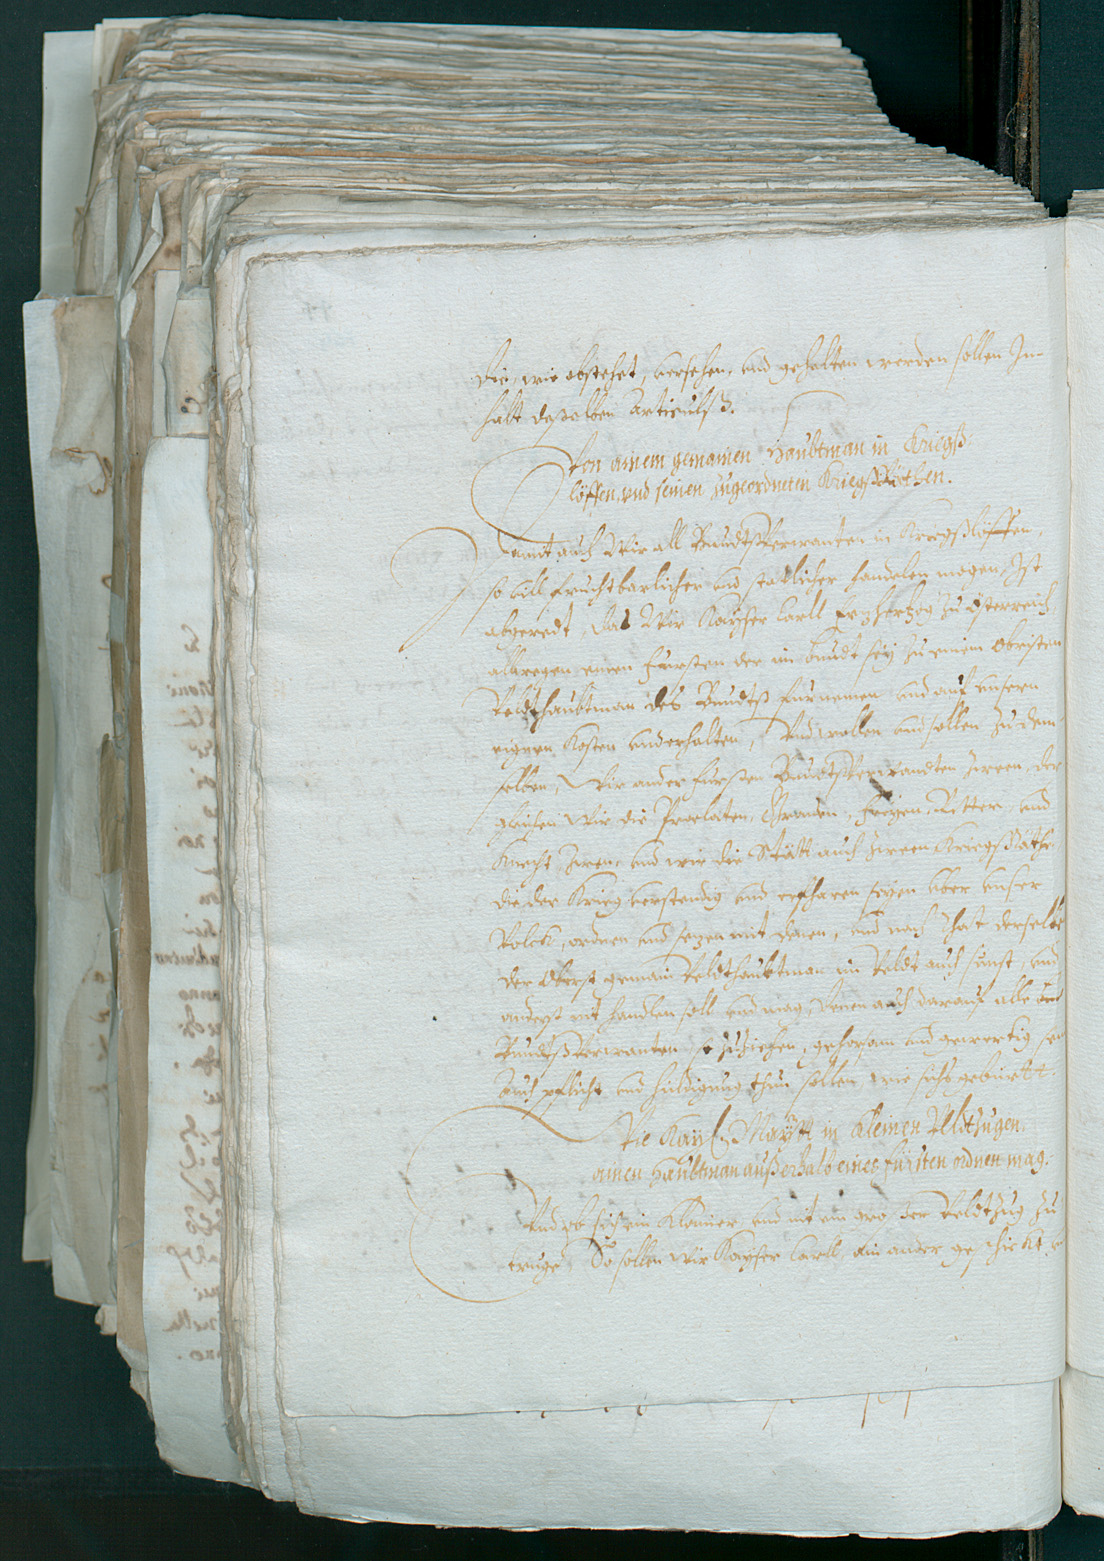 die, wie obstehet, versehen, und gehalten werden sollen In-
halt desselben Articulß.
Von ainem gemainen Haubtman in Kriegß
löffen, und seinen zugeordneten KriegßRäthen.
Damit auch Wir all Bundtßverwanten in Kriegßlöffen,
so vill fruchtbarlicher und statlicher handelen mogen, Ist
abgeredt, das Wir Kayser Carll Ertzhertzog zu Osterreich
allwegen einen Fürsten der im bundt sey zu einem Obristen
Veldthaubtman des Bundtß furnemen und auf unsern
eignen Kosten underhalten, Und wollen und sollen zu dem-
selben, Wir ander Fürsten Bundtßverwandten Iren, der
gleichen Wir die Praelaten, Graven, Freyen, Ritter, und
Knecht Iren, und wir die Stätt auch Iren Kriegßräthe
die der Krieg verstendig und erfharen seyen uber unser
Volck, ordnen und setzen mit denen, und nach Rhat derselbe
der Oberst gemain Veldthaubtman im Veldt auch sunst, und
anderst nit handlen soll und mag, denen auch darauf alle
Bundtßverwanten so zuziehen, gehorsam und gewertig sei
Auch pflicht und huldigung thun sollen wie sichs gebürtt.
Die Kay. Maytt in kleinen Veldtzugen
ainen Haubtman außerhalb eines fürsten ordnen mag.
Und ob sich ein kleiner und nit ein gros der Veldtzug zu
truge, So sollen wir Kayser Carll ein ander geschickt